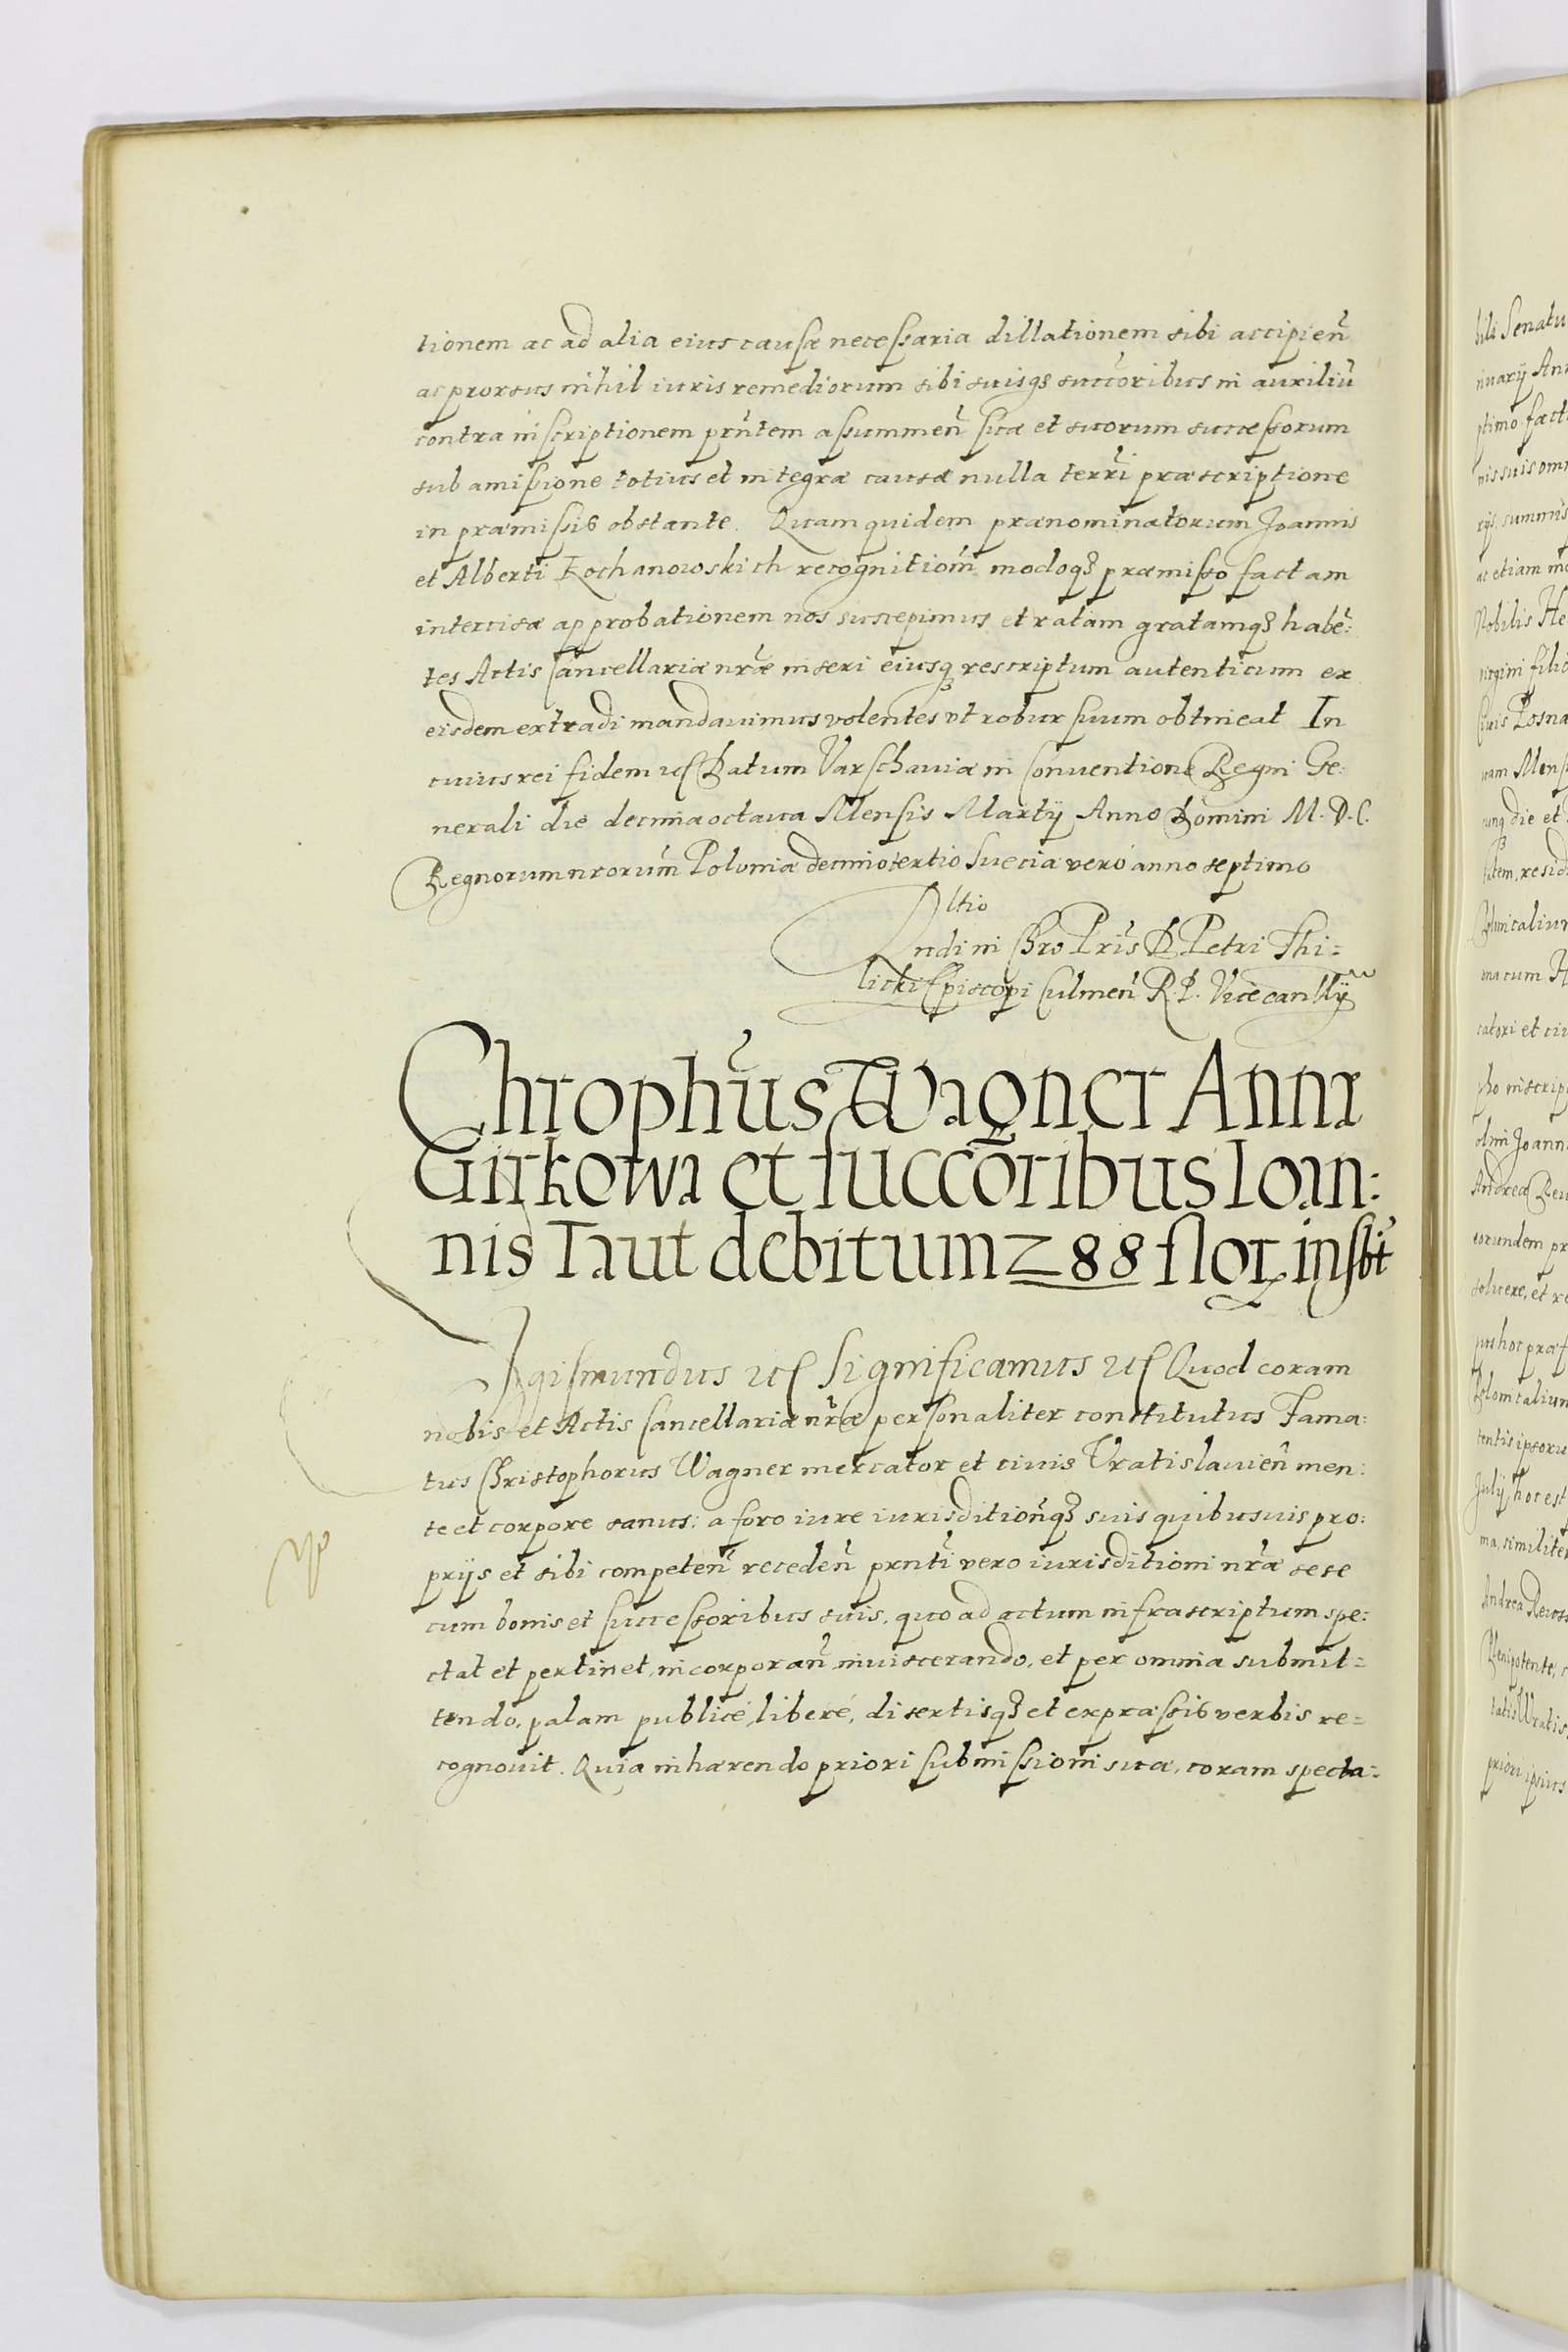 tionem ac ad alia eius causæ necessaria dillationem sibi accipień
ac prorsus nihil iuris remediorum sibi suisq3 succoribus in auxiliū
contra inscriptionem prńtem assummeń suæ et suorum successorum
sub amissione totius et integræ causæ nulla terrī præscriptione
in præmissis obstante. Quam quidem prænominatorum Joannis
et Alberti Kochanowskich recognitiom̄ modoq3 præmisso factam
intercisæ approbationem nos suscepimus et ratam gratamq3 habē:
tes Actis Cancellariæ nræ inseri eiusq3 rescriptum autenticum ex
eisdem extradi mandauimus volentes vt robur suum obtineat In
cuius rei fidem etc Datum Varschauiæ in Conuentione Regni Ge:
nerali die decima octaua Mensis Martij Anno Domini M. D. C.
Regnorum nrorum̄ Poloniæ decimotertio Sueciæ vero anno septimo
Rltio
Rndi in Chro Pris D Petri Thi=
licki Episcopi Culmeń R. P. Vicecanllÿ
Chrophus Wagner Annæ
Girkowa et succoribus Ioan:
nis Taut debitum 288 flor. insbt
Sigismundus etc Significamus etc Quod coram
nobis et Actis Cancellariæ nræ personaliter constitutus Fama:
tus Christophorus Wagner mercator et ciuis Vratislauień men:
te et corpore sanus: a foro iure iurisditionq3 suis quibusuis pro:
prijs et sibi competeń recedeń prnti vero iurisditioni nræ sese
cum bonis et successoribus suis, quo ad actum infrascriptum spe:
ctat et pertinet, incorporań inuiscerando, et per omnia submit=
tendo, palam publicé, liberé, disertisq3 et expræssis verbis re=
cognouit. Quia inhærendo priori submissioni suæ, coram specta=
bili Senatu
ptimo fact
nis suis om
rijs, summis
ac etiam m
Nobilis He
virgini filiæ
Posna
uam Mens
die et
resid
macum
catori et ciu
inscrip
olim Joann
Andreæ
eorundem pr
soluere, et re
post hoc præf
tentis ipsoru
July, hoc est
ma, similiter
Andrea
Plenipotente,
priori ipsius